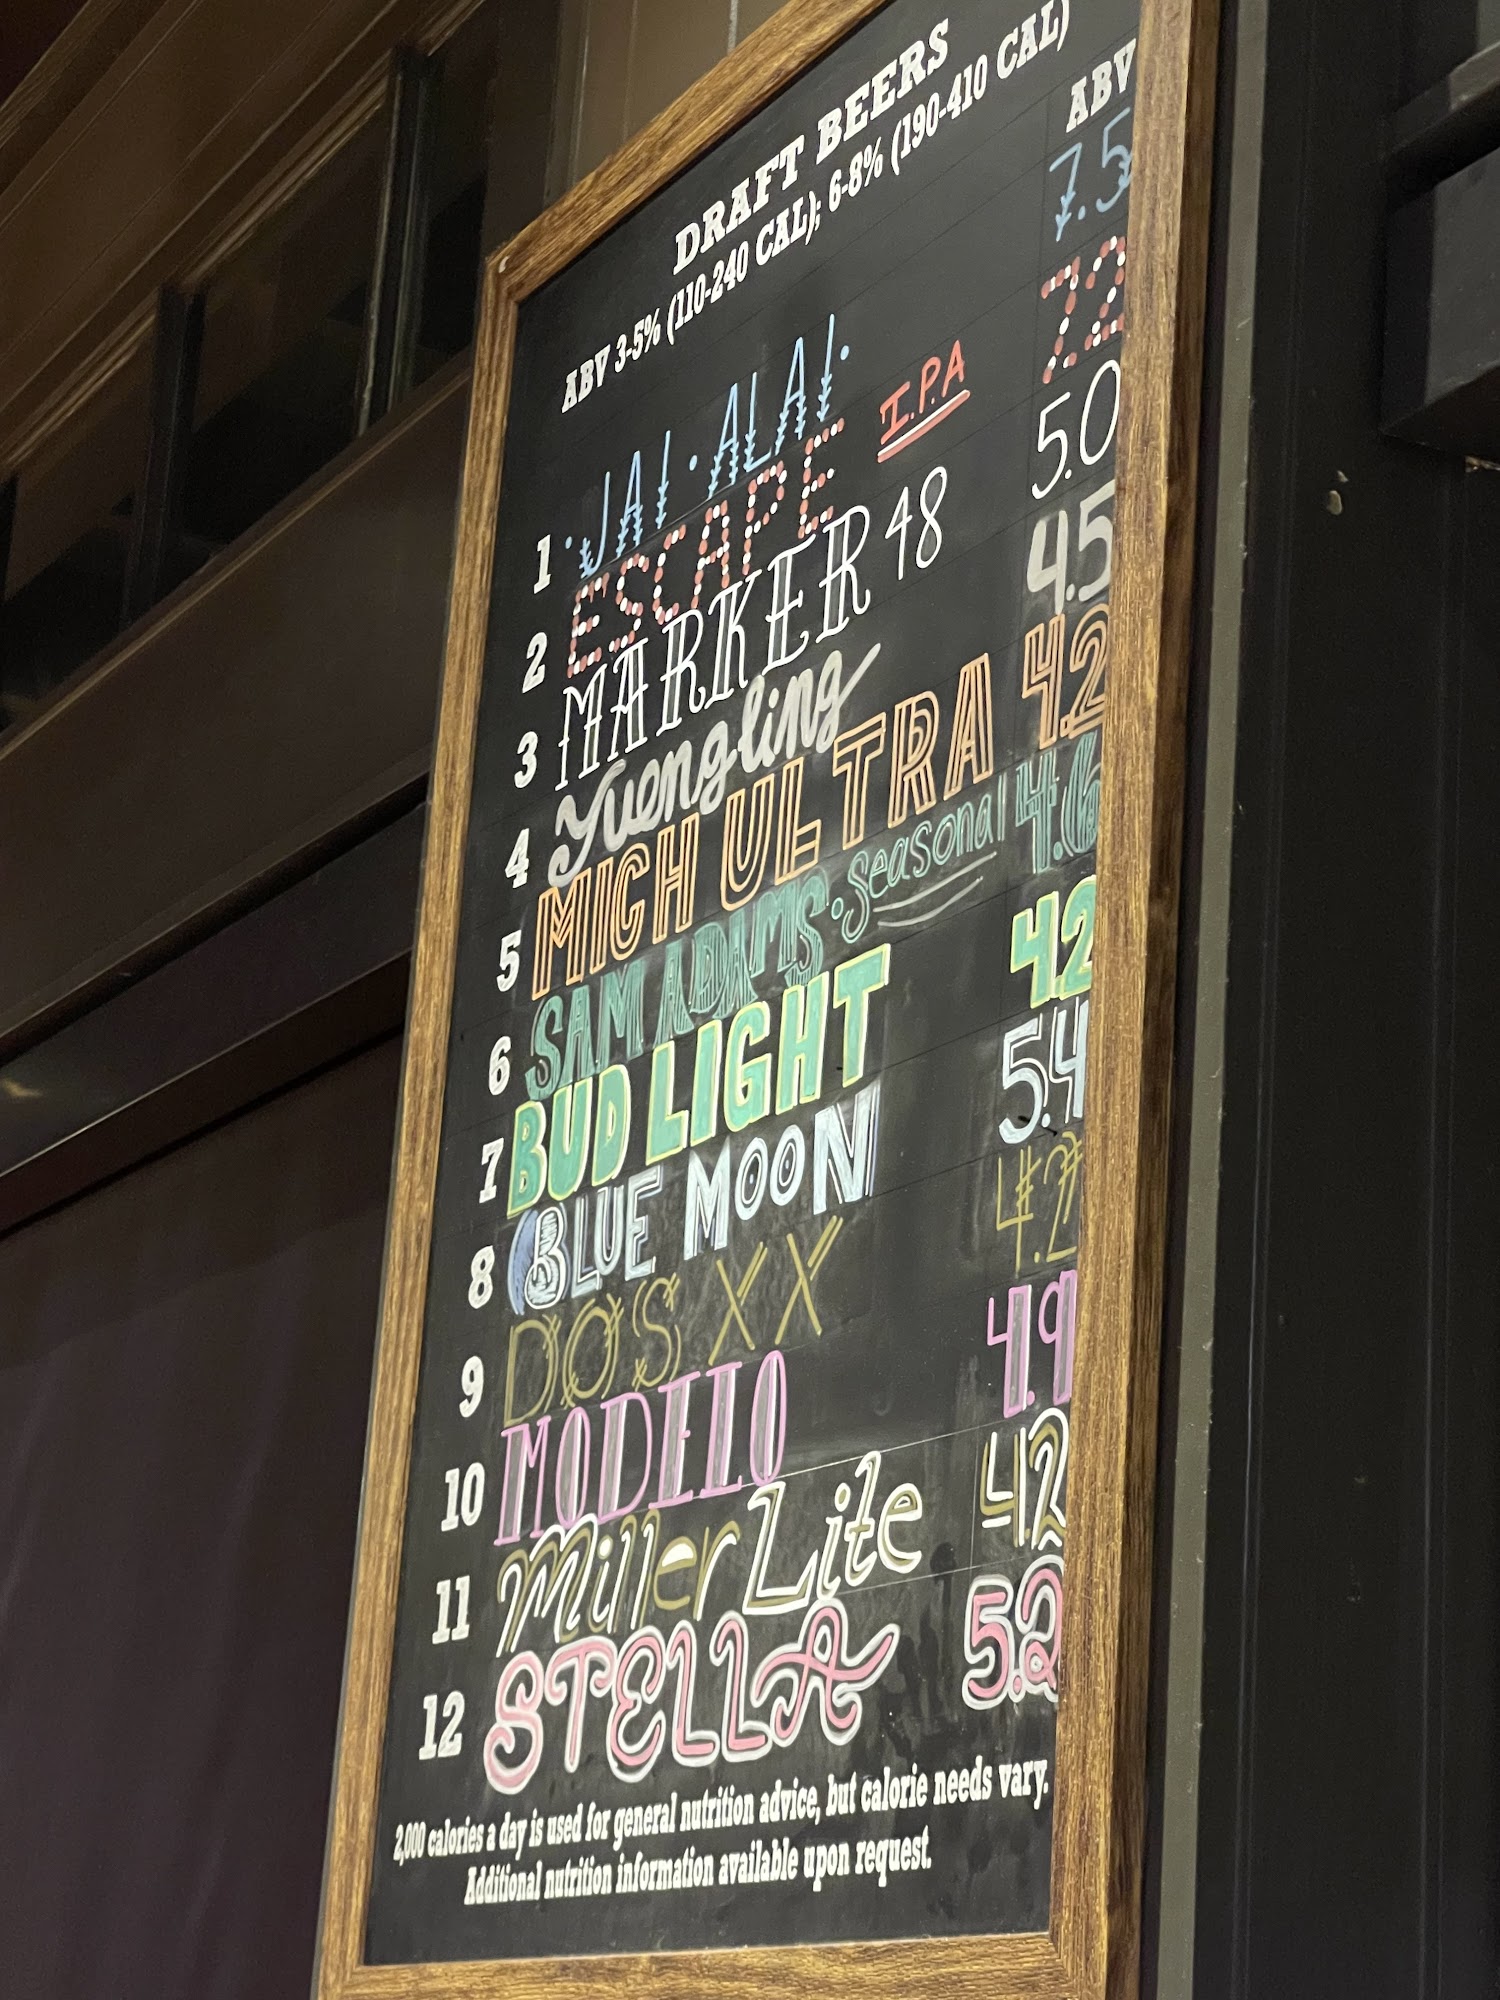 DRAFT BEERS
ABV 3-5% (110-240 CAL); 6-8% (190-410 CAL)
ABV
1 ·JAI·ALAI· I.P.A 7.5
2 ESCAPE 7.2
3 MARKER 48 5.0
4 Yuengling 4.5
5 MICH ULTRA 4.2
6 SAM ADAMS·seasonal 4.6
7 BUD LIGHT 4.2
8 BLUE MOON 5.4
9 DOS XX 4.2
10 MODELO 4.9
11 Miller Lite 4.2
12 STELLA 5.2
2,000 calories a day is used for general nutrition advice, but calorie needs vary.
Additional nutrition information available upon request.